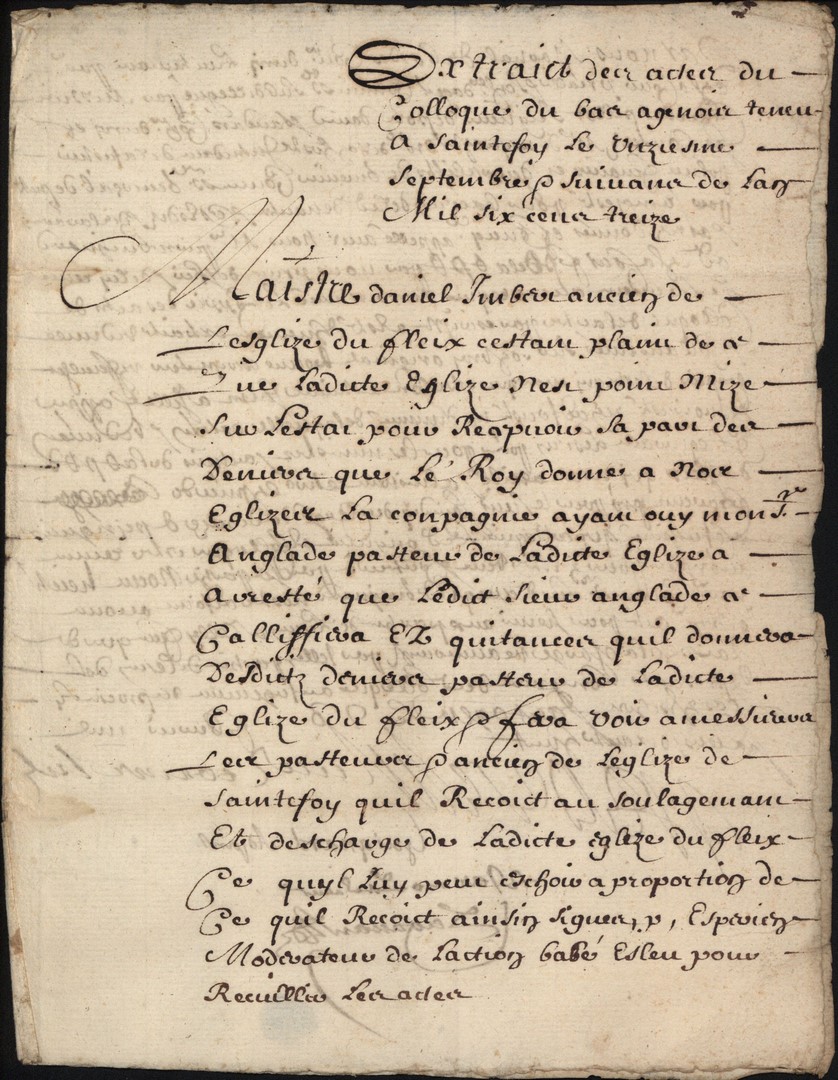 Extraict des actes du
Colloque du bas agenois teneu
A saintefoy Le Unziesme
septembre & suivans de Lan
Mil six cens treize
Maistre daniel Imber ancien de
Lesglize du fleix cestant plaint de ce
Que Ladicte Eglize Nest point Mize
sur Lestat pour Recepvoir sa part des
Deniers que Le Roy donne a Nos
Eglizes La conpagnie ayant ouy monsr
Anglade pasteur de Ladicte Eglize a
Arresté que Ledict sieur anglade ce
Calliffiera Ez quitances quil donnera
Desdictz deniers pasteur de Ladicte
Eglize du fleix & fera voir a messieurs
Les pasteurs & ancien de Leglize de
saintefoy quil Recoict au soulagemant
Et descharge de Ladicte eglize du fleix
Ce quyl Luy peut eschoir a proportion de
Ce quil Recoict ainsin signes, p, Esperien
Moderateur de Laction babé Esleu pour
Recuillir Les actes